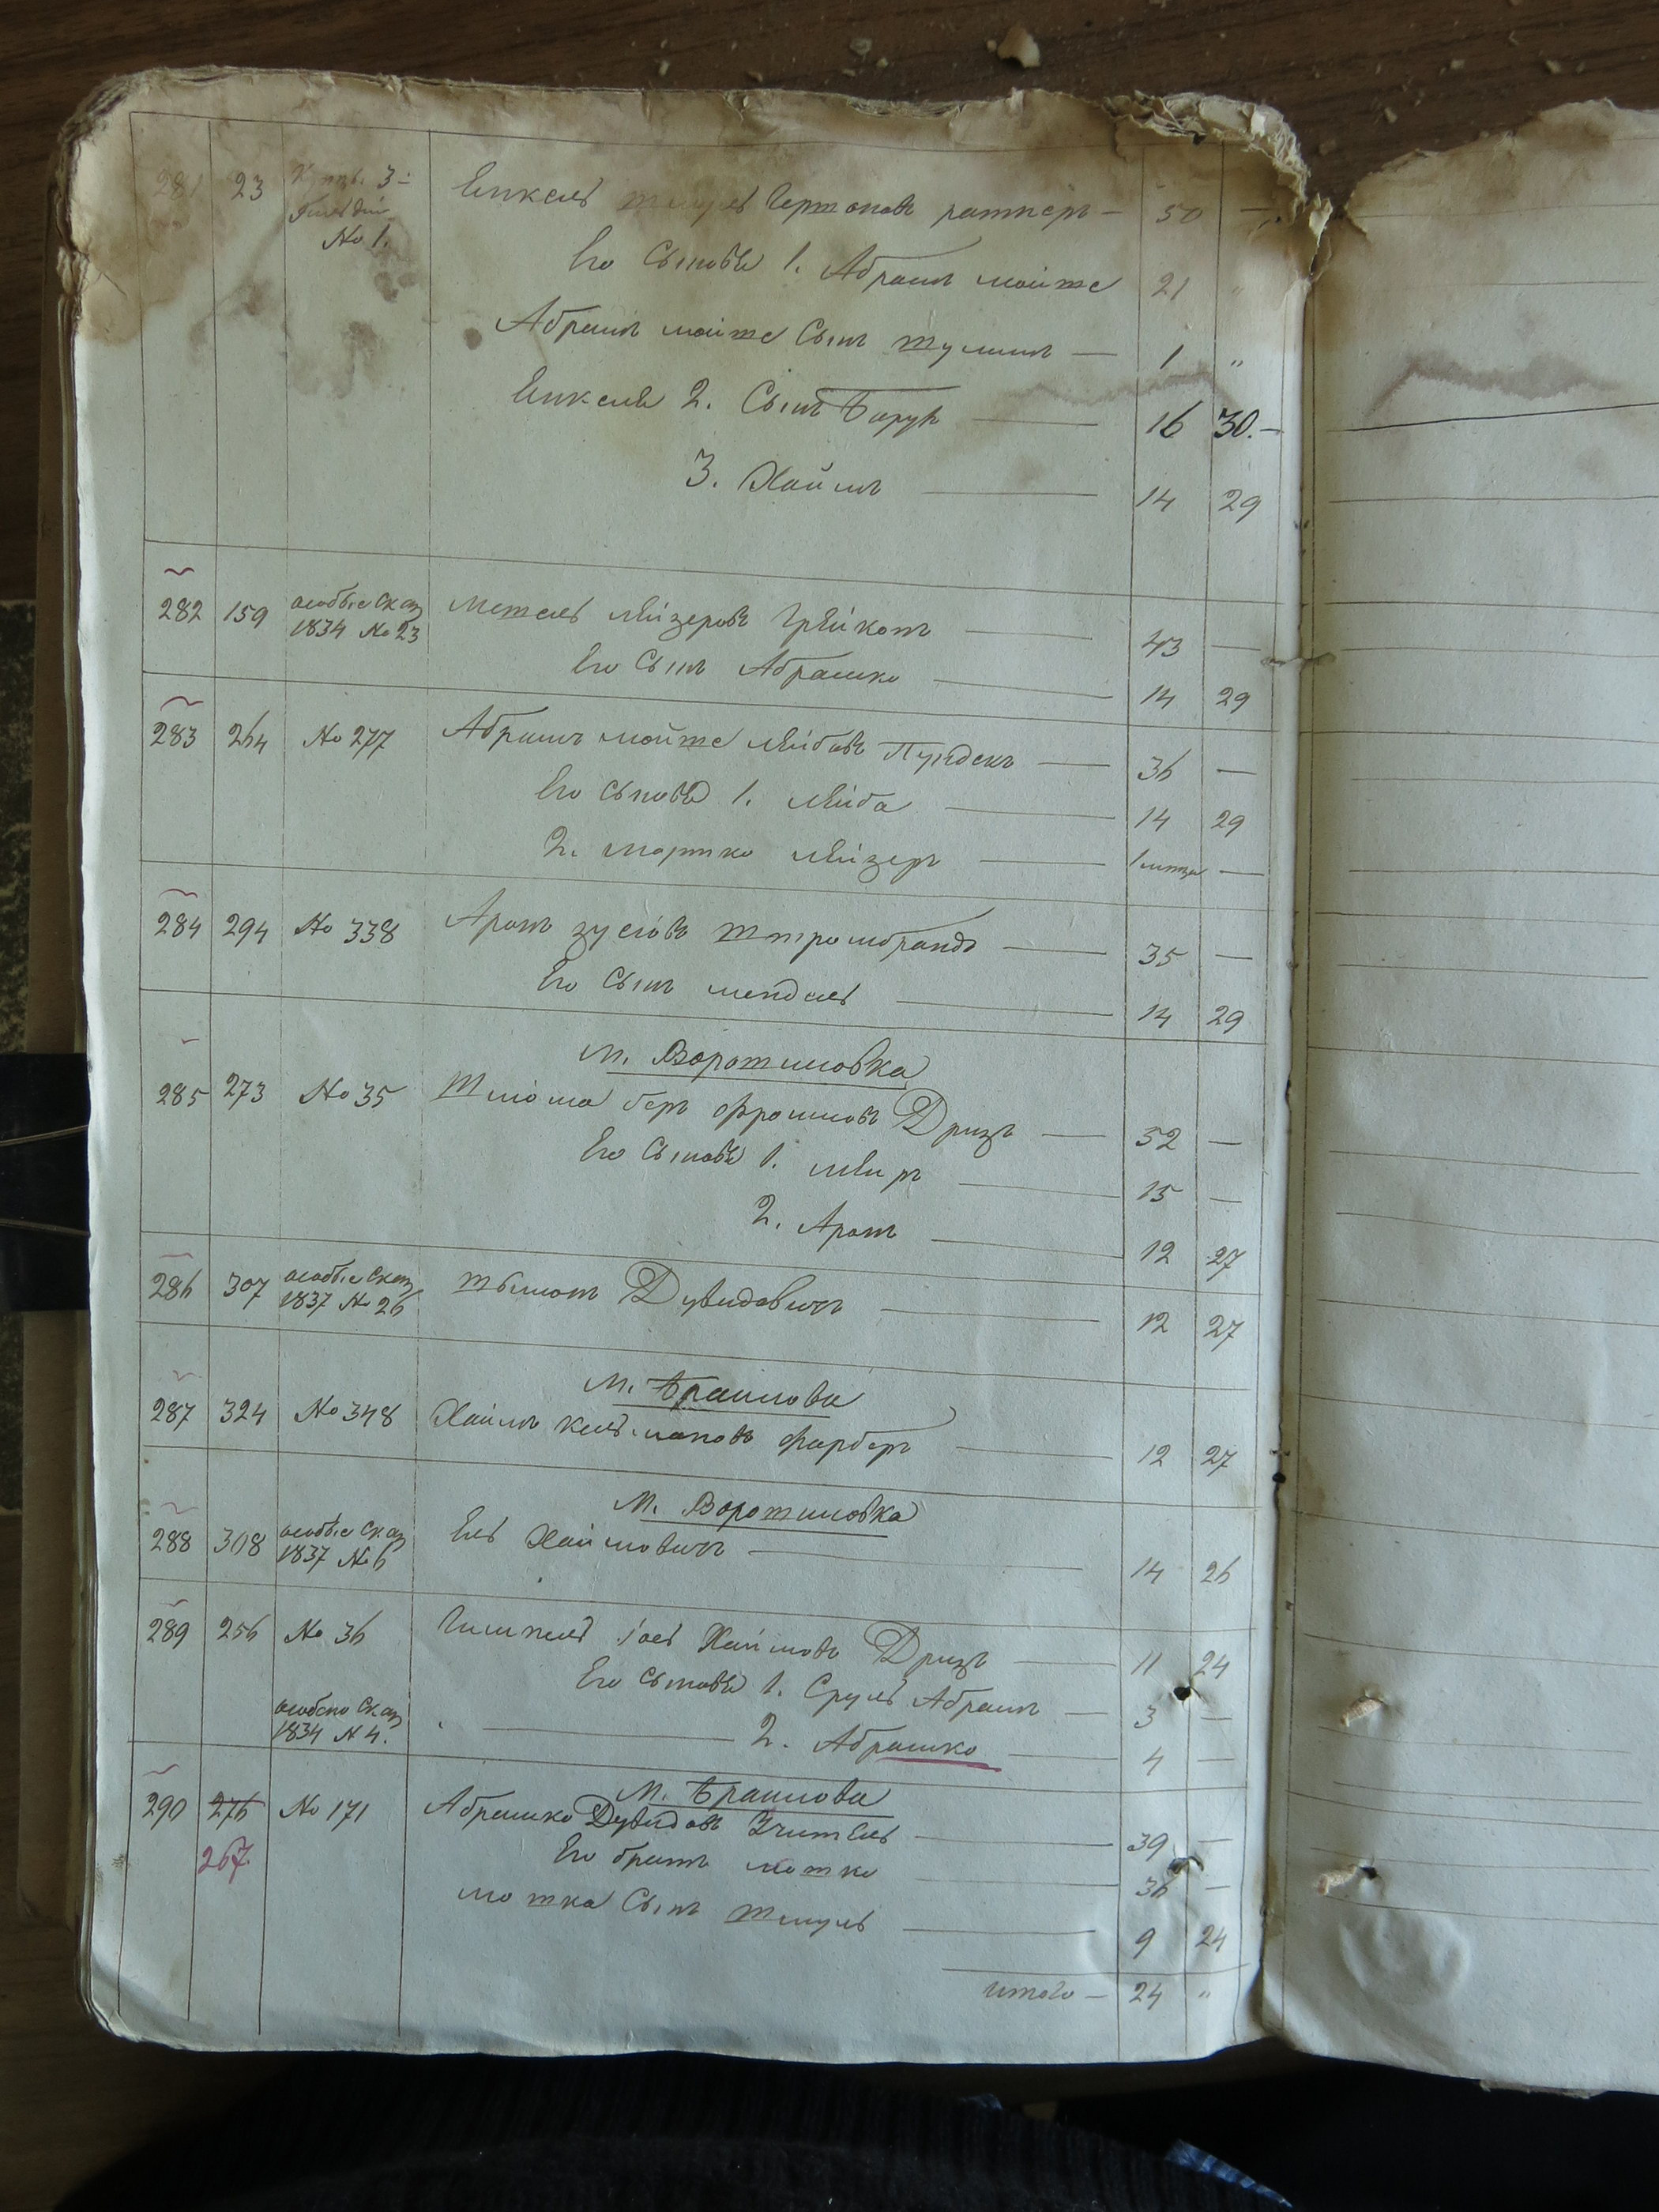 281 23 Купц. 3-
гильдіи
№ 1.
Енкель Шмуль Гертоновъ ратнеръ — 50 —
Его Сыновья 1. Абрамъ мойше 21 "
Абрамъ мойше Сынъ шулимъ — 1 "
Енкеля 2. Сынъ Борух — 16 30.-
3. Хаймъ — 14 29
282 159 особые Сказ
1834 № 23
лейзеровъ — 43 —
Его Сынъ Абрамко — 14 29
283 264 № 277 Абрамъ мойше лейбовъ Пундекъ — 36 —
Его Сыновья 1. лейба — 14 29
2. мортко лейзеръ — —
284 294 № 338 Аронъ зусовъ штромбрандъ — 35 —
Его Сынъ мендель — 14 29
м. Ворошиловка
285 273 № 35 Шлiома беръ фроимовъ Дризъ — 52 —
Его Сыновья 1. меиръ — 15 —
2. Аронъ — 12 27
286 307 особые Сказ
1837 № 26
Дувидовичъ — 12 27
м. Браилова
287 324 № 348 Хаимъ кельмановъ фарберъ — 12 27
м. Ворошиловка
288 308 особые Сказ
1837 № 6
Ель Хаимовичъ — 14 26
289 256 № 36 Гимпель iось Хаимовъ Дризъ — 11 24
Его Сыновья 1. Сруль Абрамъ — 3 —
особою Сказ
1834 № 4.
2. Абрамко — 4 —
м. Браилова
290 276 № 171 Абрамко Дувидовъ Учитель — 39 —
267
Его братъ мошко — 36 —
мошка Сынъ шмуль — 9 24
итого — 24 "